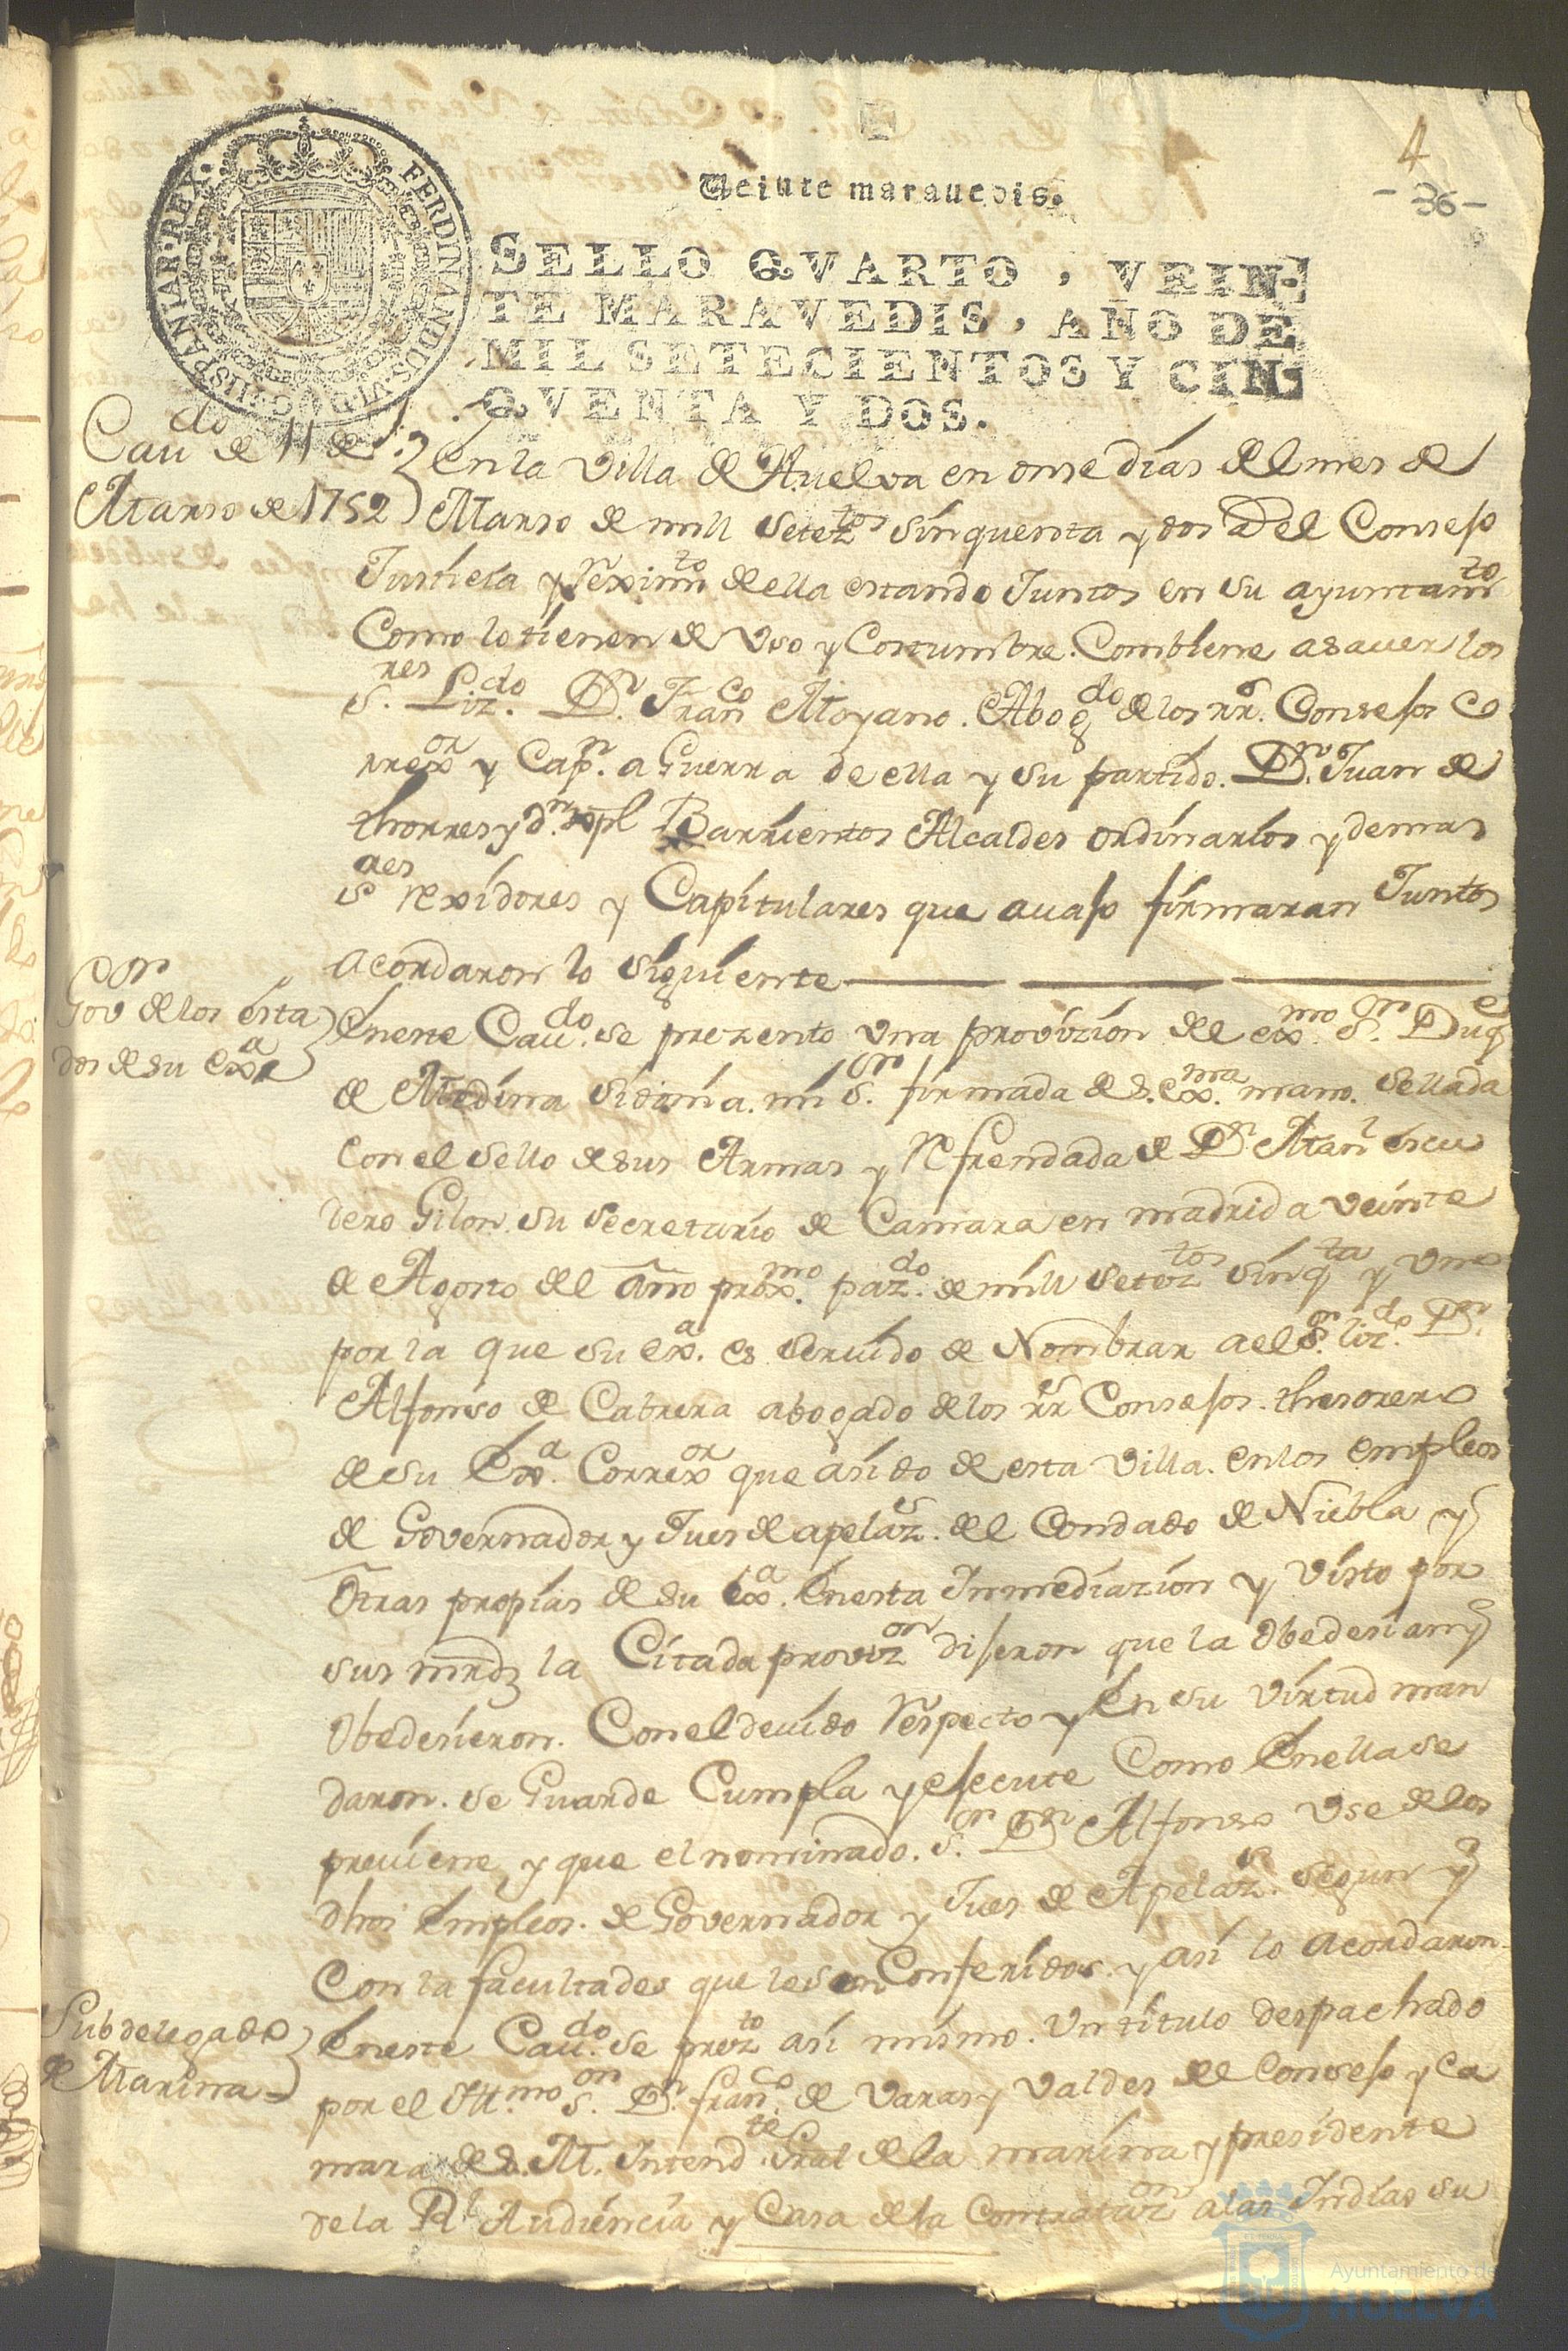 4
-36-
Veinte marauedis.
HISPANIAR·REX· FERDINANDUS·VI·D·G·
SELLO QVARTO, VEIN-
TE MARAVEDIS, AÑO DE
MIL SETECIENTOS Y CIN-
QVENTA Y DOS.
Cau.do de 11 de
Marso de 1752
En la Villa de Huelva en onse días del mes de
Marso de mill setez.tos sinquenta y dos a. el Consejo
Justicia y Reximto. de ella estando Juntos en su ayuntamto.
Como lo tienen de Vso y Costumbre. Combiene a sauer los
S.res Liz.do D.n Fran.co Moyano. Abog.do de los rr.s Consejos Co
rrex.or y Cap.n a Guerra de ella y su partido. D.n Juan de
thorres y d.n Xpl Barrientos Alcaldes ordinarios y demas
S.res rexidores y Capitulares que auajo firmaran Juntos
acordaron lo siguiente
G.or
Gov de los esta
dos de su ex.a
Eneste Cau.do se prezento vna provizion del ex.mo S.or Duq.e
de Medina Sidonia. mi S.or firmada de s. ex.ma mano. Sellada
Con el Sello de sus Armas y Refrendada de D.n Man.l escu
dero Gilon. su Secretario de Camara en madrid a veinte
de Agosto del Año prox.mo paz.do de mill setez.tos sinq.ta y vno
por la que su ex.a es seruido de Nombrar a el S.or liz.do D.n
Alfonso de Cabrera abogado de los rr.s Consejos. thesorero
de su Ex.a Correx.or que asido de esta Villa. en los empleos
de Governador y Jues de apelaz.s del Condado de Niebla y
Otras propias de su ex.a Enesta Inmediazion y Visto por
sus mrdz la Citada provvz.on dijeron que la Obedesian y
Obedesieron. Con el deuido Respecto y En su Virtud man
daron. se Guarde Cumpla y ejecute Como Enella se
preuiene y que el nominado. S.or D.n Alfonso Vse de los
dhos Empleos. de Governador y Jues de Apelaz.s segun y
Con la facultades que le son Conferidas. y asi lo acordaron.
Subdelegado
de Marina
Eneste Cau.do se prez.to asi mismo. Vn titulo despachado
por el Ill.mo S.or D.n fran.co de Varas y Valdes del Consejo y Ca
mara de S. M. Intend.te Gral de la marina y presidente
de la R.l Audiencia y Casa de la Contrataz.on a las Indias su
Ayuntamiento de
HUELVA